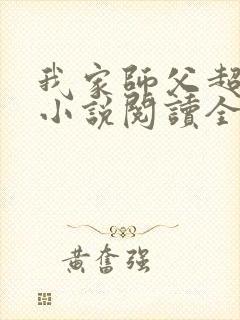 我家師父超
小說閱讀全
黃奮強